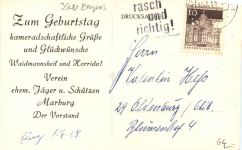 Zum Geburtstag
kameradschaftliche Grüße
und Glückwünsche
Waidmannsheil und Horrido!
Verein
ehem. Jäger u. Schützen
Marburg
Der Vorstand
DRUCKSACHE
rasch
und
richtig!
Herrn
Valentin Heß
29 Oldenburg / Old.
Blumenhof 4